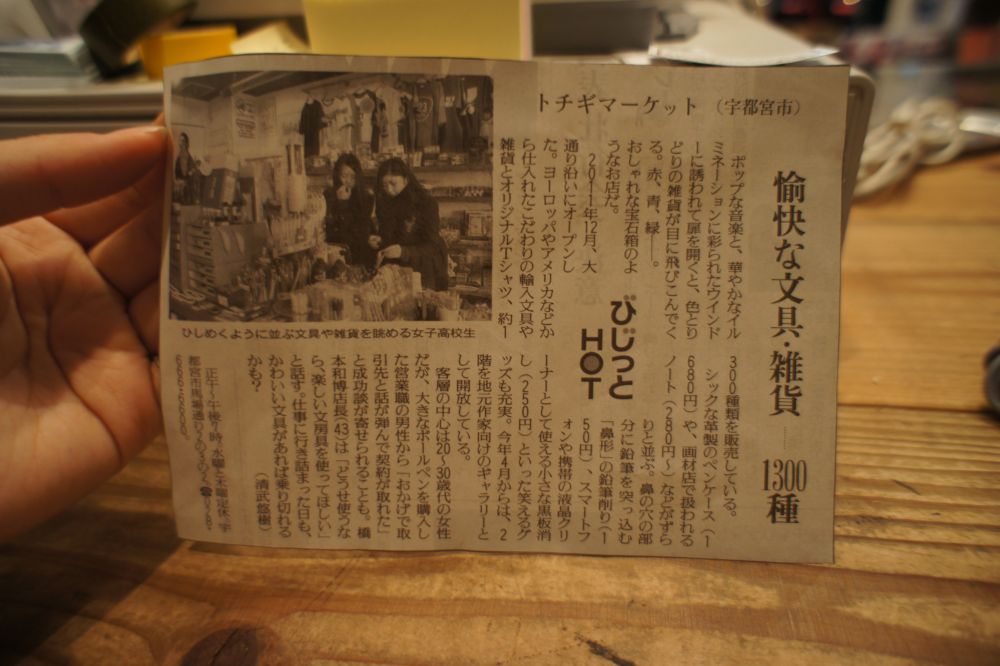 トチギマーケット（宇都宮市）
愉快な文具・雑貨……1300種
びじっと
HOT
ポップな音楽と、華やかなイル
ミネーションに彩られたウインド
ーに誘われて扉を開くと、色とり
どりの雑貨が目に飛びこんでく
る。赤、青、緑――。
おしゃれな宝石箱のよ
うなお店だ。
2011年12月、大
通り沿いにオープンし
た。ヨーロッパやアメリカなどか
ら仕入れたこだわりの輸入文具や
雑貨とオリジナルTシャツ、約1
300種類を販売している。
シックな革製のペンケース（1
680円）や、画材店で扱われる
ノート（280円～）などがずら
りと並ぶ。鼻の穴の部
分に鉛筆を突っ込む
「鼻形」の鉛筆削り（1
50円）、スマートフ
ォンや携帯の液晶クリ
ーナーとして使える小さな黒板消
し（250円）といった笑えるグ
ッズも充実。今年4月からは、2
階を地元作家向けのギャラリーと
して開放している。
客層の中心は20～30歳代の女性
だが、大きなボールペンを購入し
た営業職の男性から「おかげで取
引先と話が弾んで契約が取れた」
と成功談が寄せられることも。橋
本和博店長（43）は「どうせ使うな
ら、楽しい文房具を使ってほしい」
と話す。仕事に行き詰まった日も、
かわいい文具があれば乗り切れる
かも？
（清武悠樹）
正午～午後7時。水曜と木曜定休。宇
都宮市馬場通り
ひしめくように並ぶ文具や雑貨を眺める女子高校生